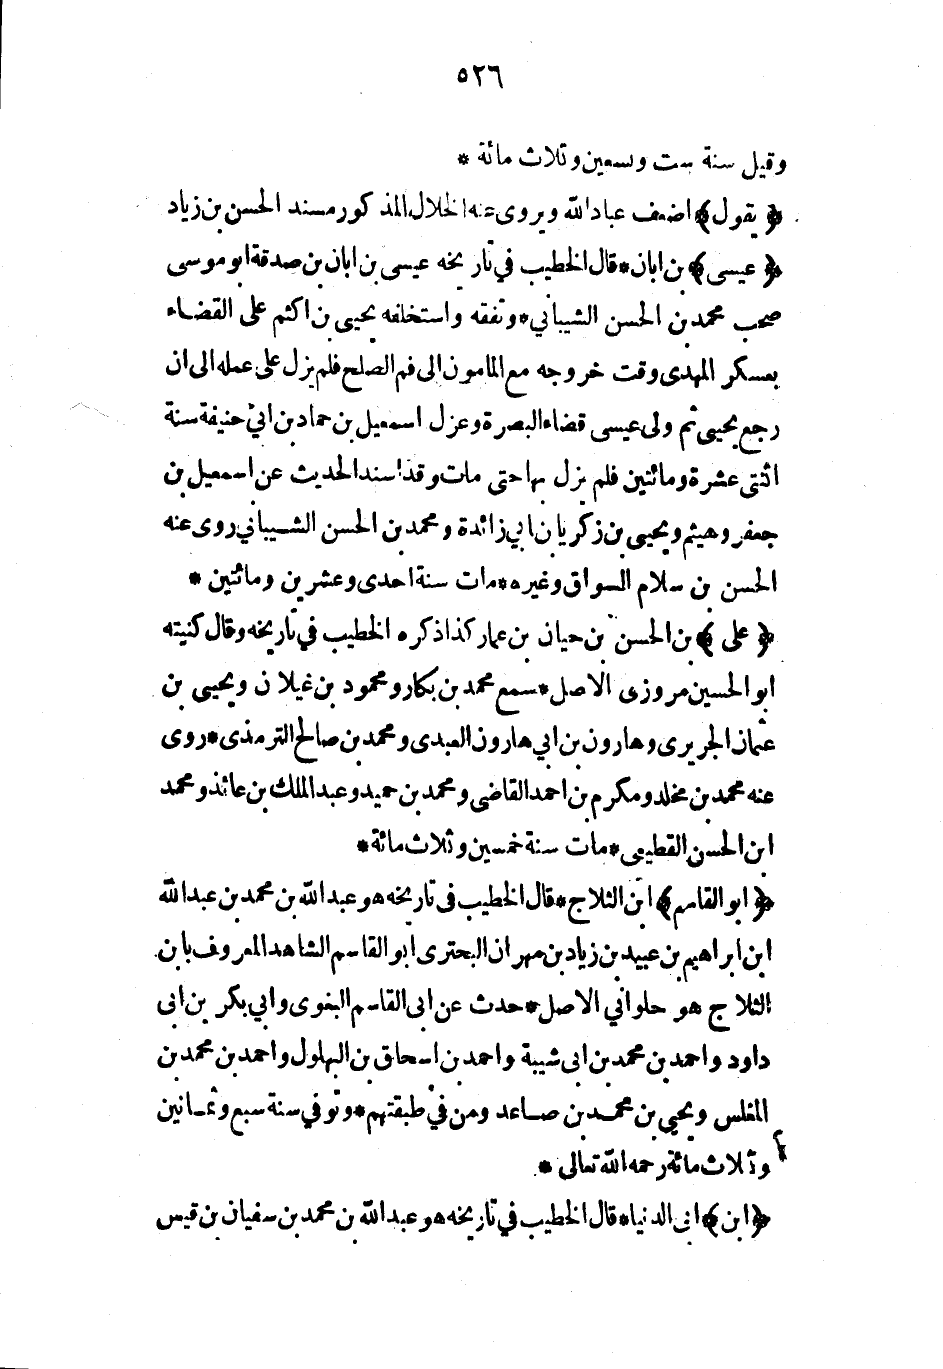 ٥٢٦
وقيل سنة ست وتسعين وثلاث مائة *
﴿ يقول﴾ اضعف عباد الله ويروى عنه الخلال المذكور مسند الحسن بن زياد
﴿ عيسى﴾ بن ابان * قال الخطيب في تاريخه عيسى بن ابان بن صدقة ابو موسى
صحب محمد بن الحسن الشيباني * وتفقه واستخلفه يحيى بن اكثم على القضاء
بعسكر المهدى وقت خروجه مع المامون الى فم الصلح فلم يزل على عمله الى ان
رجع يحيى ثم ولى عيسى قضاء البصرة وعزل اسمعيل بن حماد بن ابي حنيفة سنة
اثنتى عشرة ومائتين فلم يزل بها حتى مات وقد اسند الحديث عن اسمعيل بن
جعفر وهيثم ويحيى بن زكريا بن ابي زائدة ومحمد بن الحسن الشيباني روى عنه
الحسن بن سلام السواق وغيره * مات سنة احدى وعشرين ومائتين *
﴿ على ﴾ بن الحسن بن حيان بن عمار كذا ذكره الخطيب في تاريخه وقال كنيته
ابو الحسين مروزى الاصل * سمع محمد بن بكار ومحمود بن غيلان ويحيى بن
عثمان الجريرى وهارون بن ابي هارون العبدى ومحمد بن صالح الترمذى * روى
عنه محمد بن مخلد ومكرم بن احمد القاضي ومحمد بن حميد وعبد الملك بن عائذ ومحمد
ابن الحسن القطيعى * مات سنة خمسين وثلاث مائة *
﴿ ابو القاسم ﴾ ابن الثلاج * قال الخطيب فى تاريخه هو عبد الله بن محمد بن عبد الله
ابن ابراهيم بن عبيد بن زياد بن مهران البحترى ابو القاسم الشاهد المعروف بابن
الثلاج هو حلواني الاصل * حدث عن ابى القاسم البغوى وابي بكر بن ابى
داود واحمد بن محمد بن ابى شيبة واحمد بن اسحاق بن البهلول واحمد بن محمد بن
المغلس ويحيى بن محمد بن صاعد ومن في طبقتهم * وتوفي سنة سبع وثمانين
وثلاث مائة رحمه الله تعالى *
﴿ ابن ﴾ ابى الدنيا * قال الخطيب في تاريخه هو عبد الله بن محمد بن سفيان بن قيس